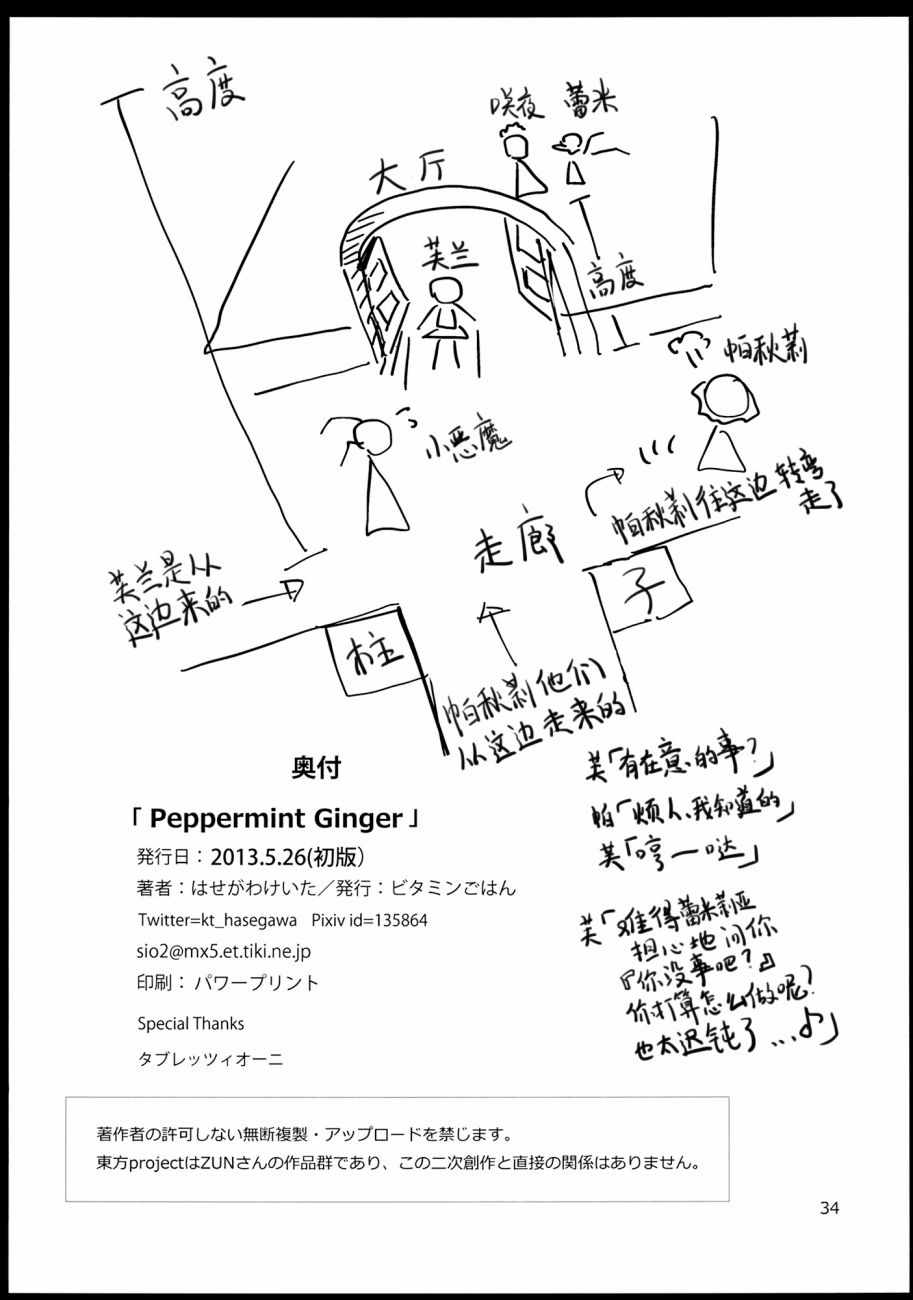 高度
咲夜
蕾米
大厅
芙兰
高度
帕秋莉
小恶魔
帕秋莉往这边转弯
走了
走廊
芙兰是从
这边来的
柱
子
帕秋莉他们
从这边走来的
芙「有在意的事？」
帕「烦人、我知道的」
芙「哼一哒」
芙「难得蕾米莉亚
担心地问你
『你没事吧？』
你打算怎么做呢？
也太迟钝了...♪」
奥付
「 Peppermint Ginger 」
発行日： 2013.5.26(初版）
著者：はせがわけいた／発行：ビタミンごはん
Twitter=kt_hasegawa Pixiv id=135864
sio2@mx5.et.tiki.ne.jp
印刷： パワープリント
Special Thanks
タブレッツィオーニ
著作者の許可しない無断複製・アップロードを禁じます。
東方projectはZUNさんの作品群であり、この二次創作と直接の関係はありません。
34